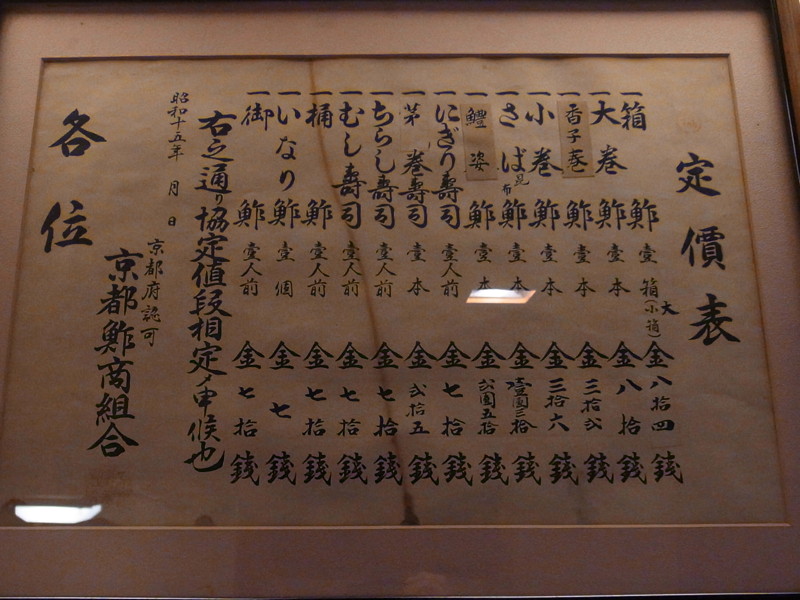 定價表
一箱鮓 壹箱(小箱)大 金八拾四錢
一大巻鮓 壹本 金八拾錢
香子巻鮓 壹本 金三拾弐錢
一小巻鮓 壹本 金三拾六錢
一さば昆布鮓 壹本 金壹圓三拾錢
一鱧姿鮓 壹本 金弐圓五拾錢
一にぎり壽司 壹人前 金七拾錢
一茅巻壽司 壹本 金弐拾五錢
一ちらし壽司 壹人前 金七拾錢
一むし壽司 壹人前 金七拾錢
一桶鮓 壹人前 金七拾錢
一いなり鮓 壹個 金七錢
一御鮓 壹人前 金七拾錢
右之通り協定値段相定メ申候也
昭和十五年 月 日
京都府認可
京都鮓商組合
各位